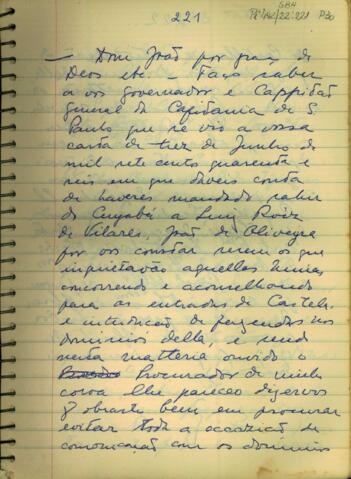 221
— Dom João por graça de
Deos etc. — Faço saber
a vos governador e Cappitão
general da Capitania de S.
Paulo que se vio a vossa
carta de trez de Junho de
mil sete cento quarenta e
seis em que daveis conta
de haveres mandado sahir
do Cuyabá a Luiz Roiz
Vilares, João de Oliveyra
por vos constar serem os que
inquietavão aquellas Minas
concorrendo e aconselhando
para as entradas de Castela
e introdução de fazendas nos
dominios della, e sendo
nesta matteria ouvido o
Procurador de minha
coroa lhe pareceo dizervos
q obraste bem em procurar
evitar toda a occazião de
comonicação com os dominios